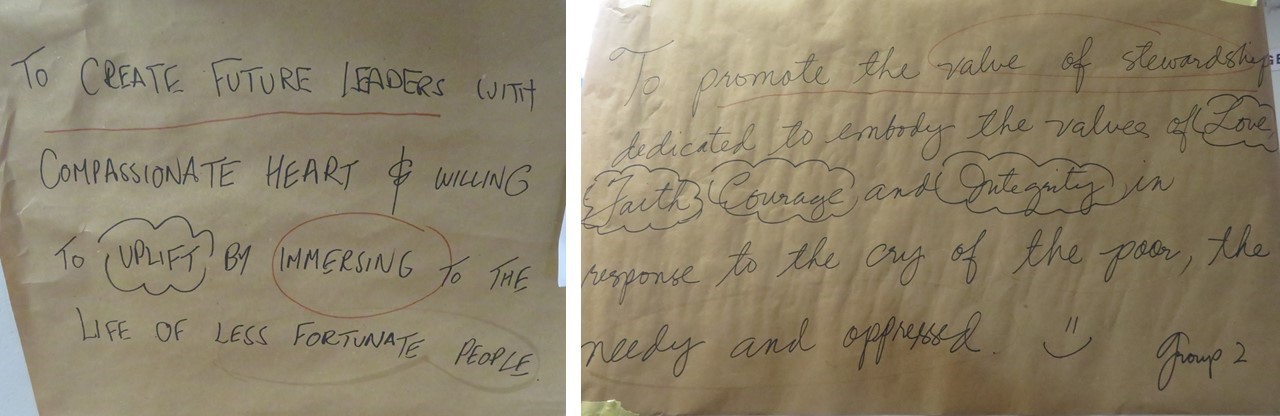 TO CREATE FUTURE LEADERS WITH
COMPASSIONATE HEART & WILLING
TO UPLIFT BY IMMERSING TO THE
LIFE OF LESS FORTUNATE PEOPLE
To promote the value of stewardship
dedicated to embody the values of Love
Faith Courage and Integrity in
response to the cry of the poor, the
needy and oppressed.
Group 2